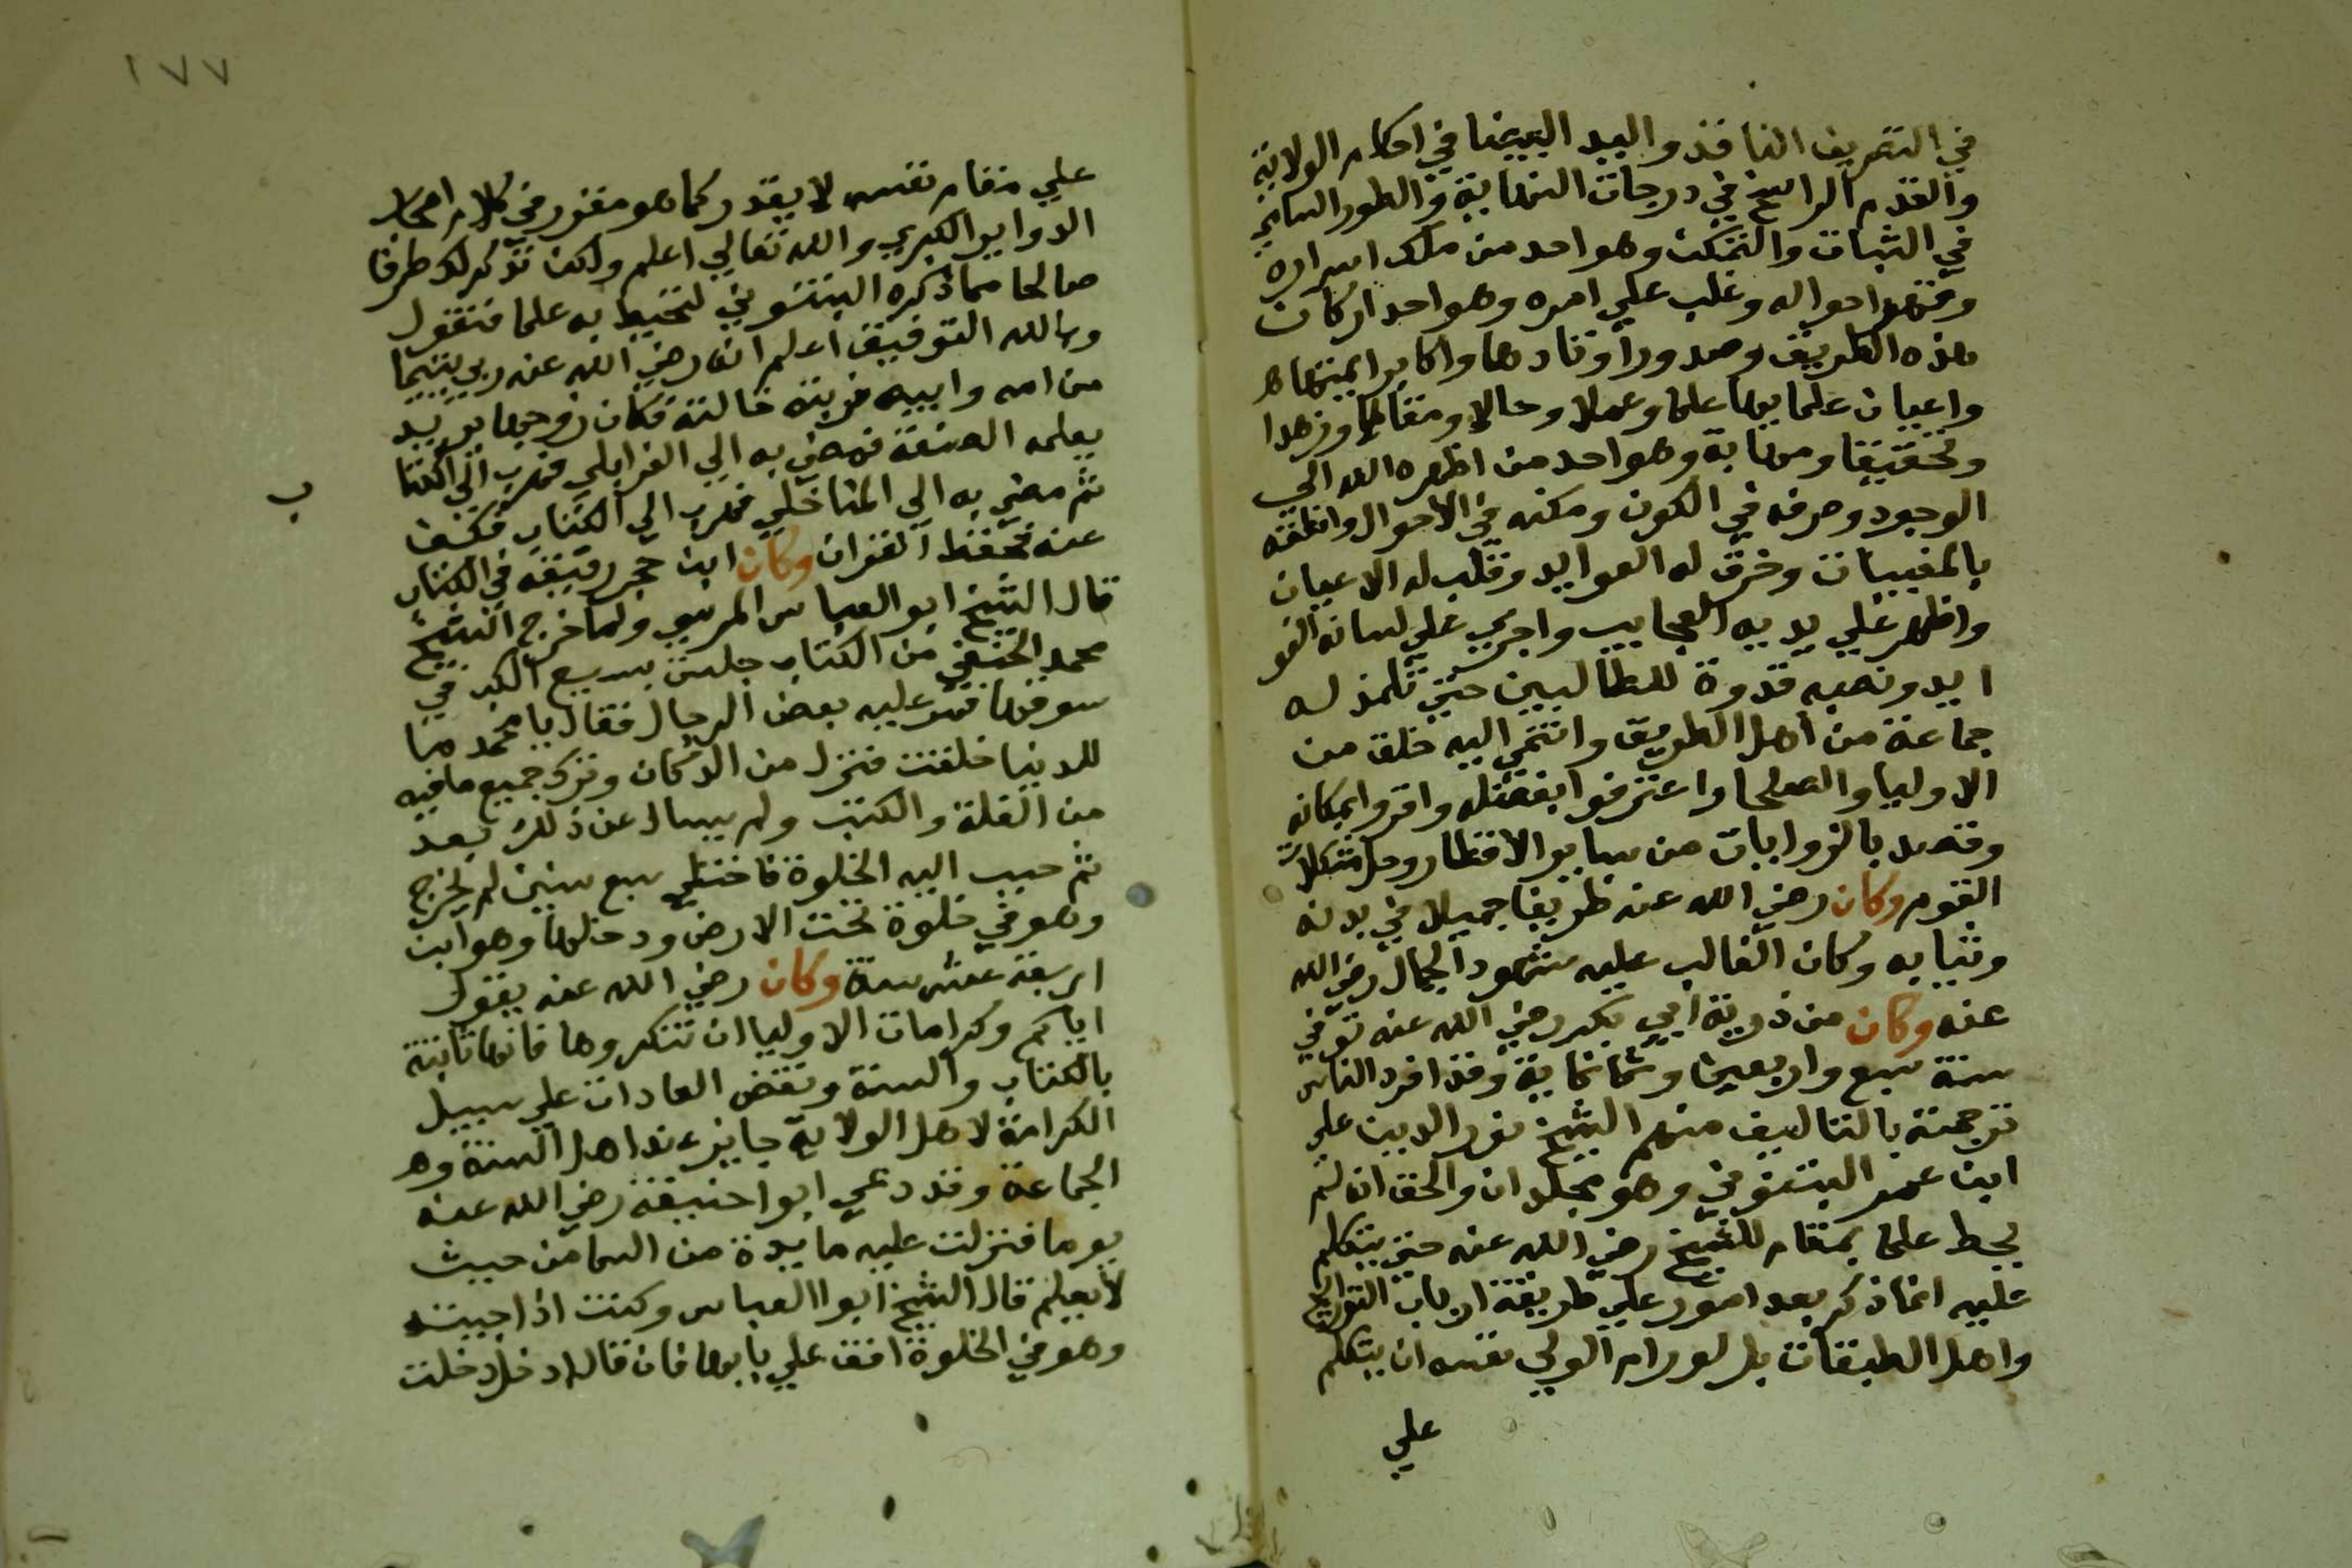 في التصريف النافذ واليد البيضا في احكام الولاية
والقدم الراسخ في درجات النهاية والطور السامي
في الثبات والتمكن وهو احد من ملك اسراره
وقهر احواله وغلب علي امره وهو احد اركان
هذه الطريق وصدور اوتادها واكابر ايمتها
واعيان علمايها علما وعملا وحالا ومقالا وزهدا
وتحقيقا ومهابة وهو احد من اظهره الله الي
الوجود وصرفه في الكون ومكنه في الاحوال وانطقه
بالمغيبات وخرق له العوايد وقلب له الاعيان
واظهر علي يديه العجايب واجري علي لسانه الفو
ايد ونصبه قدوة للطالبين حتي تلمذ له
جماعة من اهل الطريق وانتمي اليه خلق من
الاوليا والصلحا واعترفوا بفضله واقروا بمكانه
وقصد بالزوايات من ساير الاقطار وحل مشكلات
القوم وكان رضي الله عنه ظريفا جميلا في بدنه
وثيابه وكان الغالب عليه شهود الجمال رضي الله
عنه وكان من ذرية ابي بكر رضي الله عنه توفي
سنة سبع واربعين وثمانماية وقد افرد الناس
ترجمته بالتاليف منهم الشيخ نور الدين علي
ابن عمر البتنوني وهو مجلدان والحق انه لم
يحط علما بمقام الشيخ رضي الله عنه حتي يتكلم
عليه انما ذكر بعد امور علي طريقة ارباب التواريخ
واهل الطبقات بل لو رام الولي نفسه ان يتكلم
علي
١٧٧
علي مقام نفسه لا يقدر كما هو مقرر في كلام اصحاب
الدواير الكبري والله تعالي اعلم ولكن نذكر لك طرفا
صالحا مما ذكره البتنوني لتحيط به علما فنقول
وبالله التوفيق اعلم انه رضي الله عنه ربي يتيما
من امه وابيه فربته خالته فكان زوجها يريد
يعلمه الصنعة فمضي به الي الغرابلي فهرب الي الكتا
ب
ثم مضي به الي المناخلي فهرب الي الكتاب فكف
عنه فحفظ القران وكان ابن حجر رفيقه في الكتاب
قال الشيخ ابو العباس المرسي ولما خرج الشيخ
محمد الحنفي من الكتاب جلس يبيع الكتب في
سوقها فمر عليه بعض الرجال فقال يا محمد ما
للدنيا خلقت فنزل من الدكان وترك جميع ما فيه
من الغلة والكتب ولم يسال عن ذلك بعد
ثم حبب اليه الخلوة فاختلي سبع سنين لم يخرج
وهو في خلوة تحت الارض ودخلها وهو ابن
اربعة عشر سنة وكان رضي الله عنه يقول
اياكم وكرامات الاوليا ان تنكروها فانها ثابتة
بالكتاب والسنة ونقض العادات علي سبيل
الكرامة لاهل الولاية جايز عند اهل السنة و
الجماعة وقد دعي ابو احنيفة رضي الله عنه
يوما فنزلت عليه مايدة من السما من حيث
لا يعلم قال الشيخ ابوا العباس وكنت اذا جيته
وهو في الخلوة اقف علي بابها فان قال ادخل دخلت